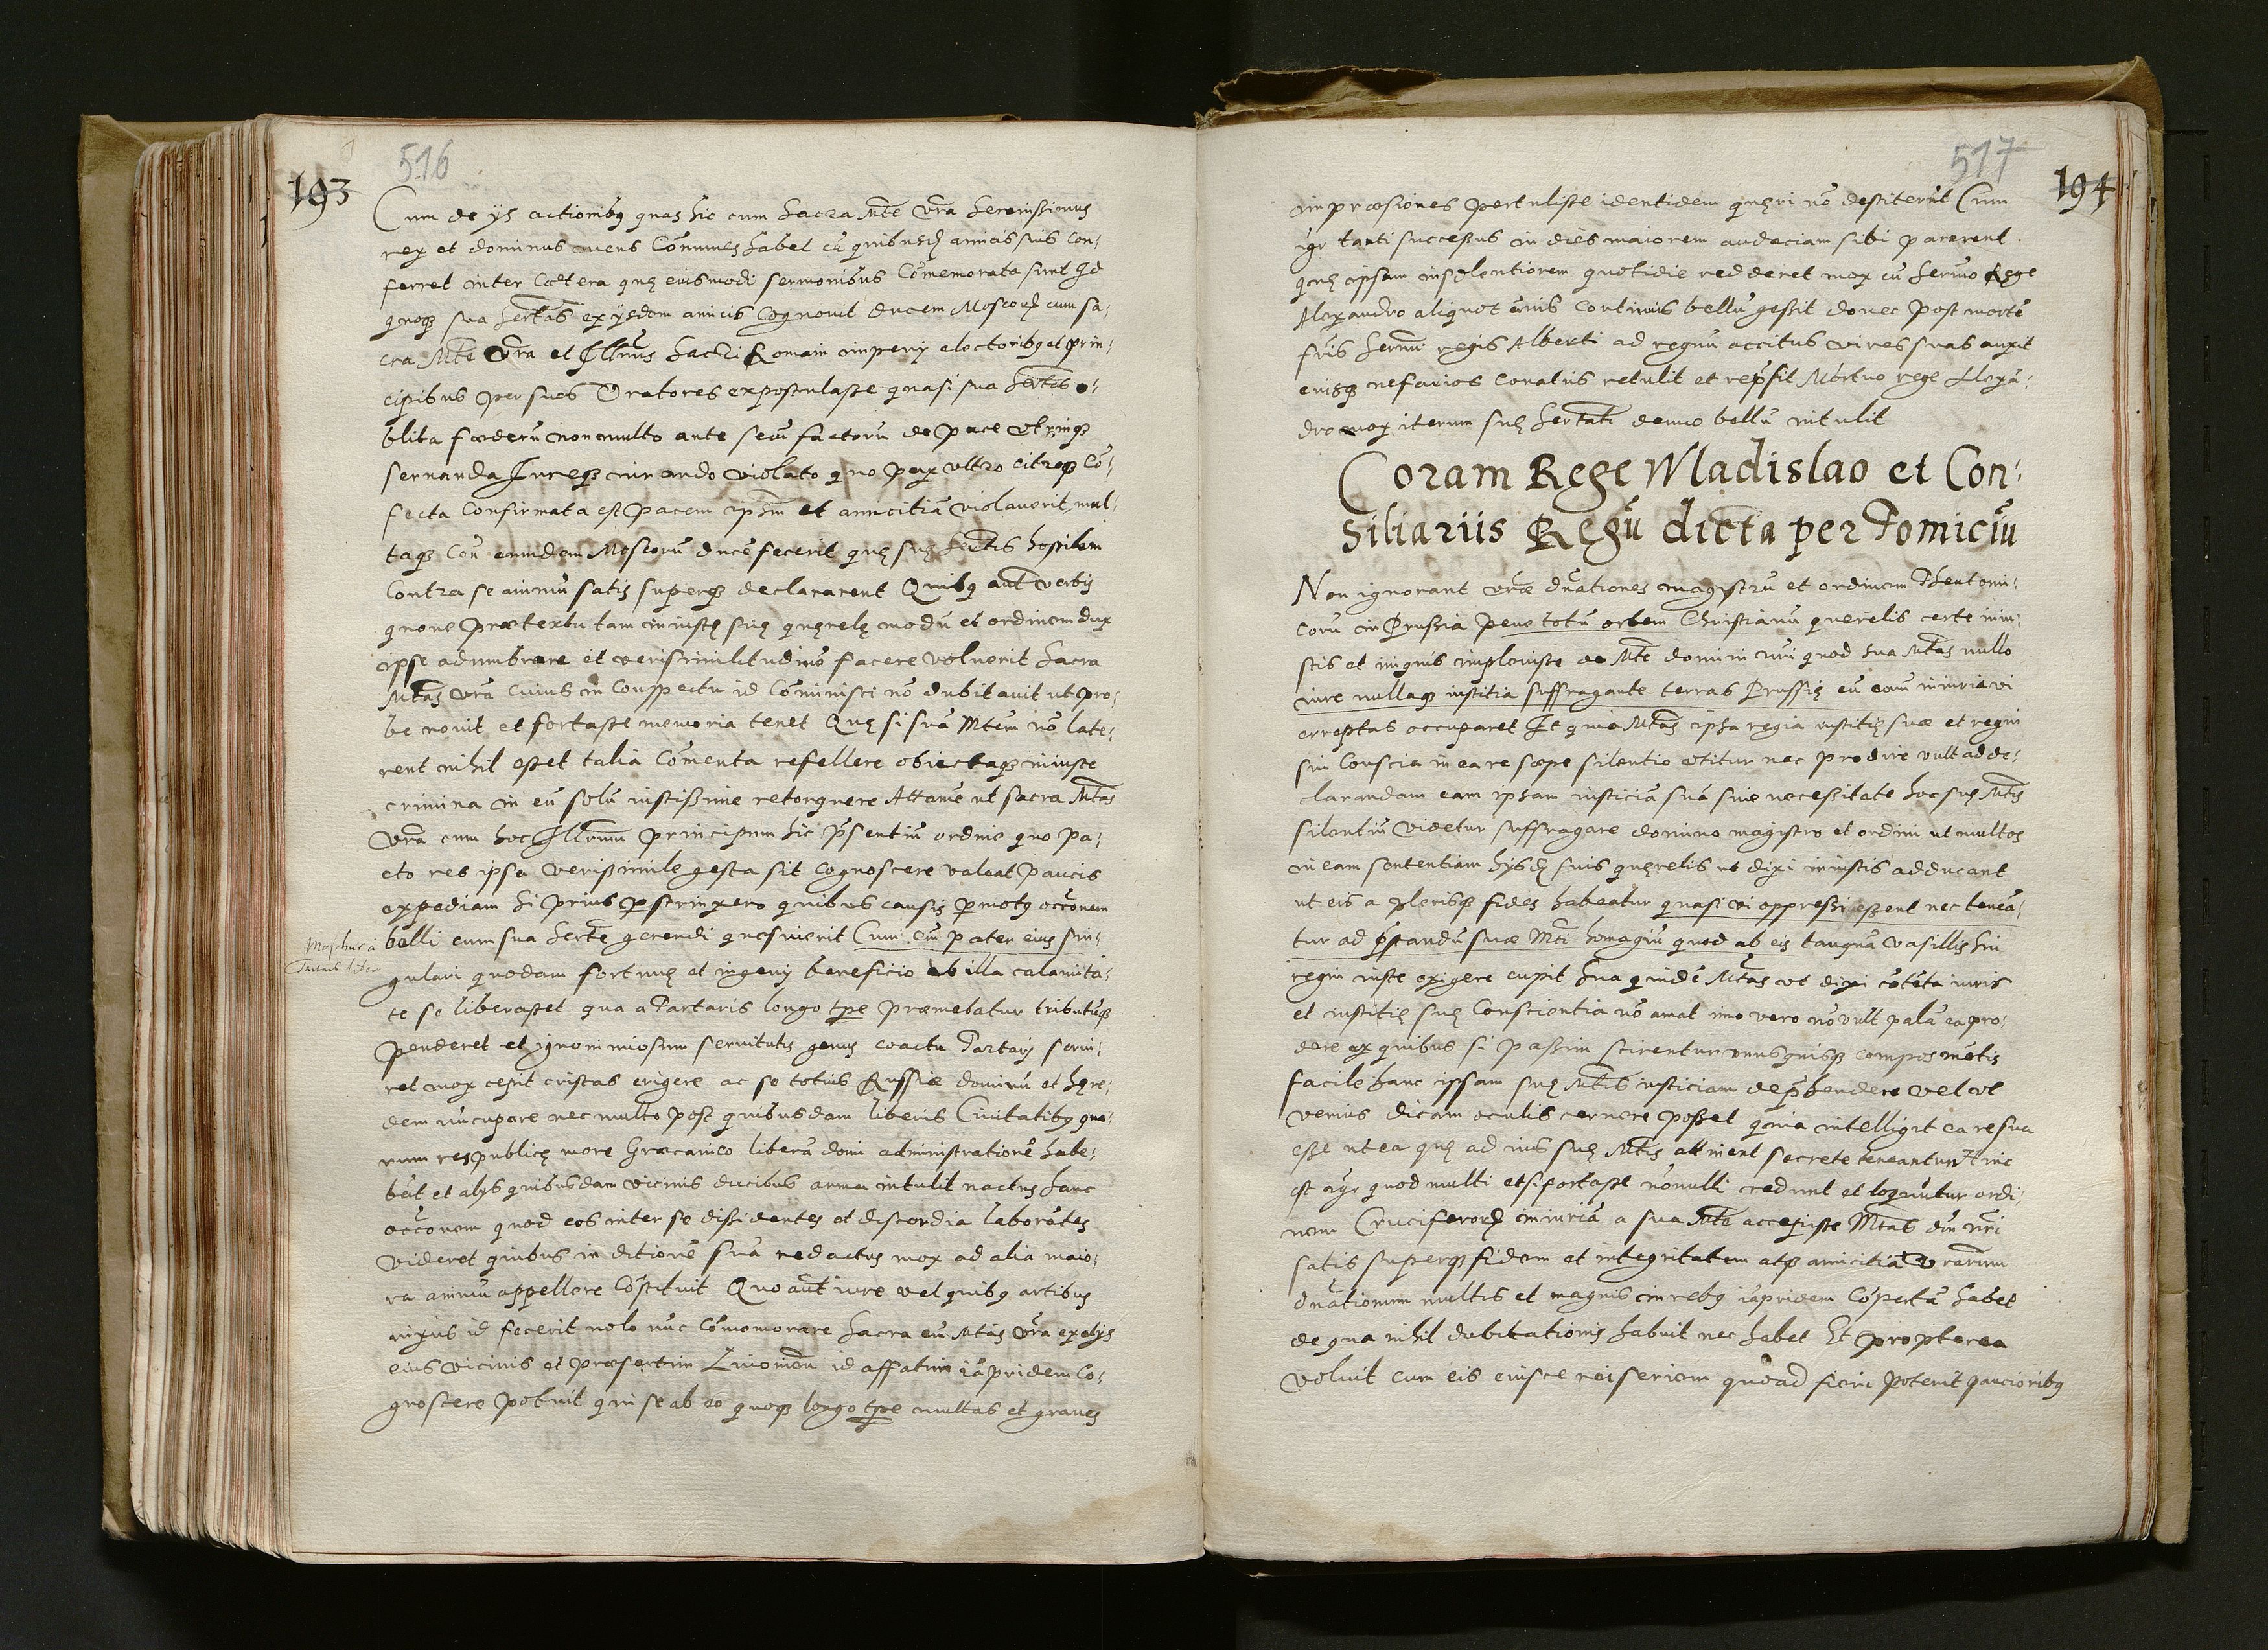 193
516
Cum de ijs actionibꝫ quas hic cum Sacra Mte vra Serenissimus
rex et dominus meus Cõmunes habet cũ quibusdã amicis suis con-
ferret inter Cætera quę eiusmodi sermonibus Cõmemorata sunt Id
quoqꝫ sua Sertas ex ijsdem amicis Cognouit ducem Moscoꝝ cum sa-
cra Mte Vra et Illmis Sacri Romani imperij electoribꝫ et prin-
cipibus per suos Oratores expostulasse quasi sua Sertas o-
blita fœderũ non multo ante secũ factorũ de pace utrinqꝫ
seruanda Iureqꝫ iurando violato quo pax ultro citroqꝫ cõ-
fecta Confirmata est pacem ipsam et amicitiã violauerit mul-
taqꝫ Con eundem Moscorũ ducẽ fecerit quę suę Sertis hostilem
Contra se animũ satis superqꝫ declararent Quibꝫ aut verbis
quoue Prætextu tam iniustę suę quęrelę modũ et ordinem dux
ipse adumbrare et verisimilitudinẽ facere voluerit Sacra
Mtas vra Cuius in Conspectu id Cõminisci nõ dubitauit ut pro-
be nouit et fortasse memoria tenet Quę si suã Mtem nõ late-
rent nihil esset talia Cõmenta refellere obiectaqꝫ iniuste
crimina in eũ solũ iustissime retorquere Attamẽ ut sacra Mtas
vra cum hoc Illrmm principum hic p̃sentiũ ordine quo pa-
cto res ipsa verissimile gesta sit Cognoscere valeat Paucis
expediam Si prius perstrinxero quibus causis permotꝫ occonem
belli cum sua Serte gerendi quesiuerit Cum em pater eius sin-
gulari quodam fortunę et ingenij beneficio ab illa calamita-
te se liberasset qua a Tartaris longo tpe præmebatur tributũqꝫ
penderet et ignominiosum seruitutis genus coactu Tartaris serui-
ret mox cepit cristas erigere ac se totius Russiæ dominũ et hęre-
dem nũcupare nec multo post quibusdam liberis Ciuitatibꝫ qua-
rum respublicę more Græcanico liberã domi administrationẽ habe-
bãt et alijs quibusdam vicinis ducibus arma intulit nactus hanc
occonem quod eos inter se dissidentes et discordia laborãtes
videret quibus in ditionẽ suã redactis mox ad alia maio-
ra animũ appellere Cõstituit Quo aut iure vel quibꝫ artibus
nixus id fecerit nolo nũc Cõmemorare Sacra em Mtas vra ex alijs
eius vicinis et præsertim Liuonien id affatim iãpridem Co-
gnoscere potuit qui se ab eo quoqꝫ longo tpe multas et graues
517
194
impræsiones pertulisse identidem quęri nõ destiterũt Cum
igr tanti successus in dies maiorem audaciam sibi parerent
quę ipsum insolentiorem quotidie redderet mox cũ Sermo Rege
Alexandro aliquot annis Continuis bellũ gessit donec post mortẽ
fris Sermi regis Alberti ad regnũ accitus vires suas auxit
eiusqꝫ nefarios conatus retulit et rep̃sit Mortuo rege Alexã-
dro mox iterum suę Sertati denuo bellũ intulit
Coram Rege Wladislao et Con-
siliariis Regũ dicta per Tomiciũ
Non ignorant vræ dnationes magistrũ et ordinem Theutoni-
corũ in Prussia pene totũ orbem Christianũ querelis certe iniu-
stis et iniquis impleuisse de Mte domini mei quod sua Mtas nullo
iure nullaqꝫ iustitia suffragante terras Prussię cũ eorũ iniuria vi
erreptas occuparet Et quia Mtas ipsa regia iustitię suæ et regni
sui Conscia in ea re sæpe silentio utitur nec prodire vult ad de-
clarandam eam ipsam iusticiã suã sine necessitate hoc suę Mtis
silentiũ videtur suffragare domino magistro et ordini ut multos
in eam sententiam hijsdẽ suis quęrelis ut dixi iniustis adducant
ut eis a plerisqꝫ fides habeatur quasi vi oppressi essent nec teneã-
tur ad p̃standũ suæ Mti homagiũ quod ab eis tanquã vasillis sui
regni iuste exigere cupit Sua quidẽ Mtas ut dixi cõtẽta iuris
et iustitię suę Conscientia nõ amat imo vero nõ vult palã ea pro-
dere ex quibus si passim scirentur unusquisqꝫ compos mẽtis
facile hanc ipsam suę Mtis iusticiam dep̃hendere vel ut
verius dicam oculis cernere posset quia intelligit ea re sua
esse ut ea quę ad ius suę Mtis attinent secrete teneantur Hinc
est igr quod multi et si fortasse nõnulli credunt et loquũtur ordi-
nem Cruciferoꝝ iniuriã a sua Mte accepisse Mtas dni nri
satis superqꝫ fidem et integritatem atqꝫ amicitiã Vrarum
dnationum multis et magnis in rebꝫ iãpridem Cõpertã habet
de qua nihil dubitationis habuit nec habet Et propterea
voluit cum eis eiusce rei seriem quoad fieri poterit paucioribꝫ